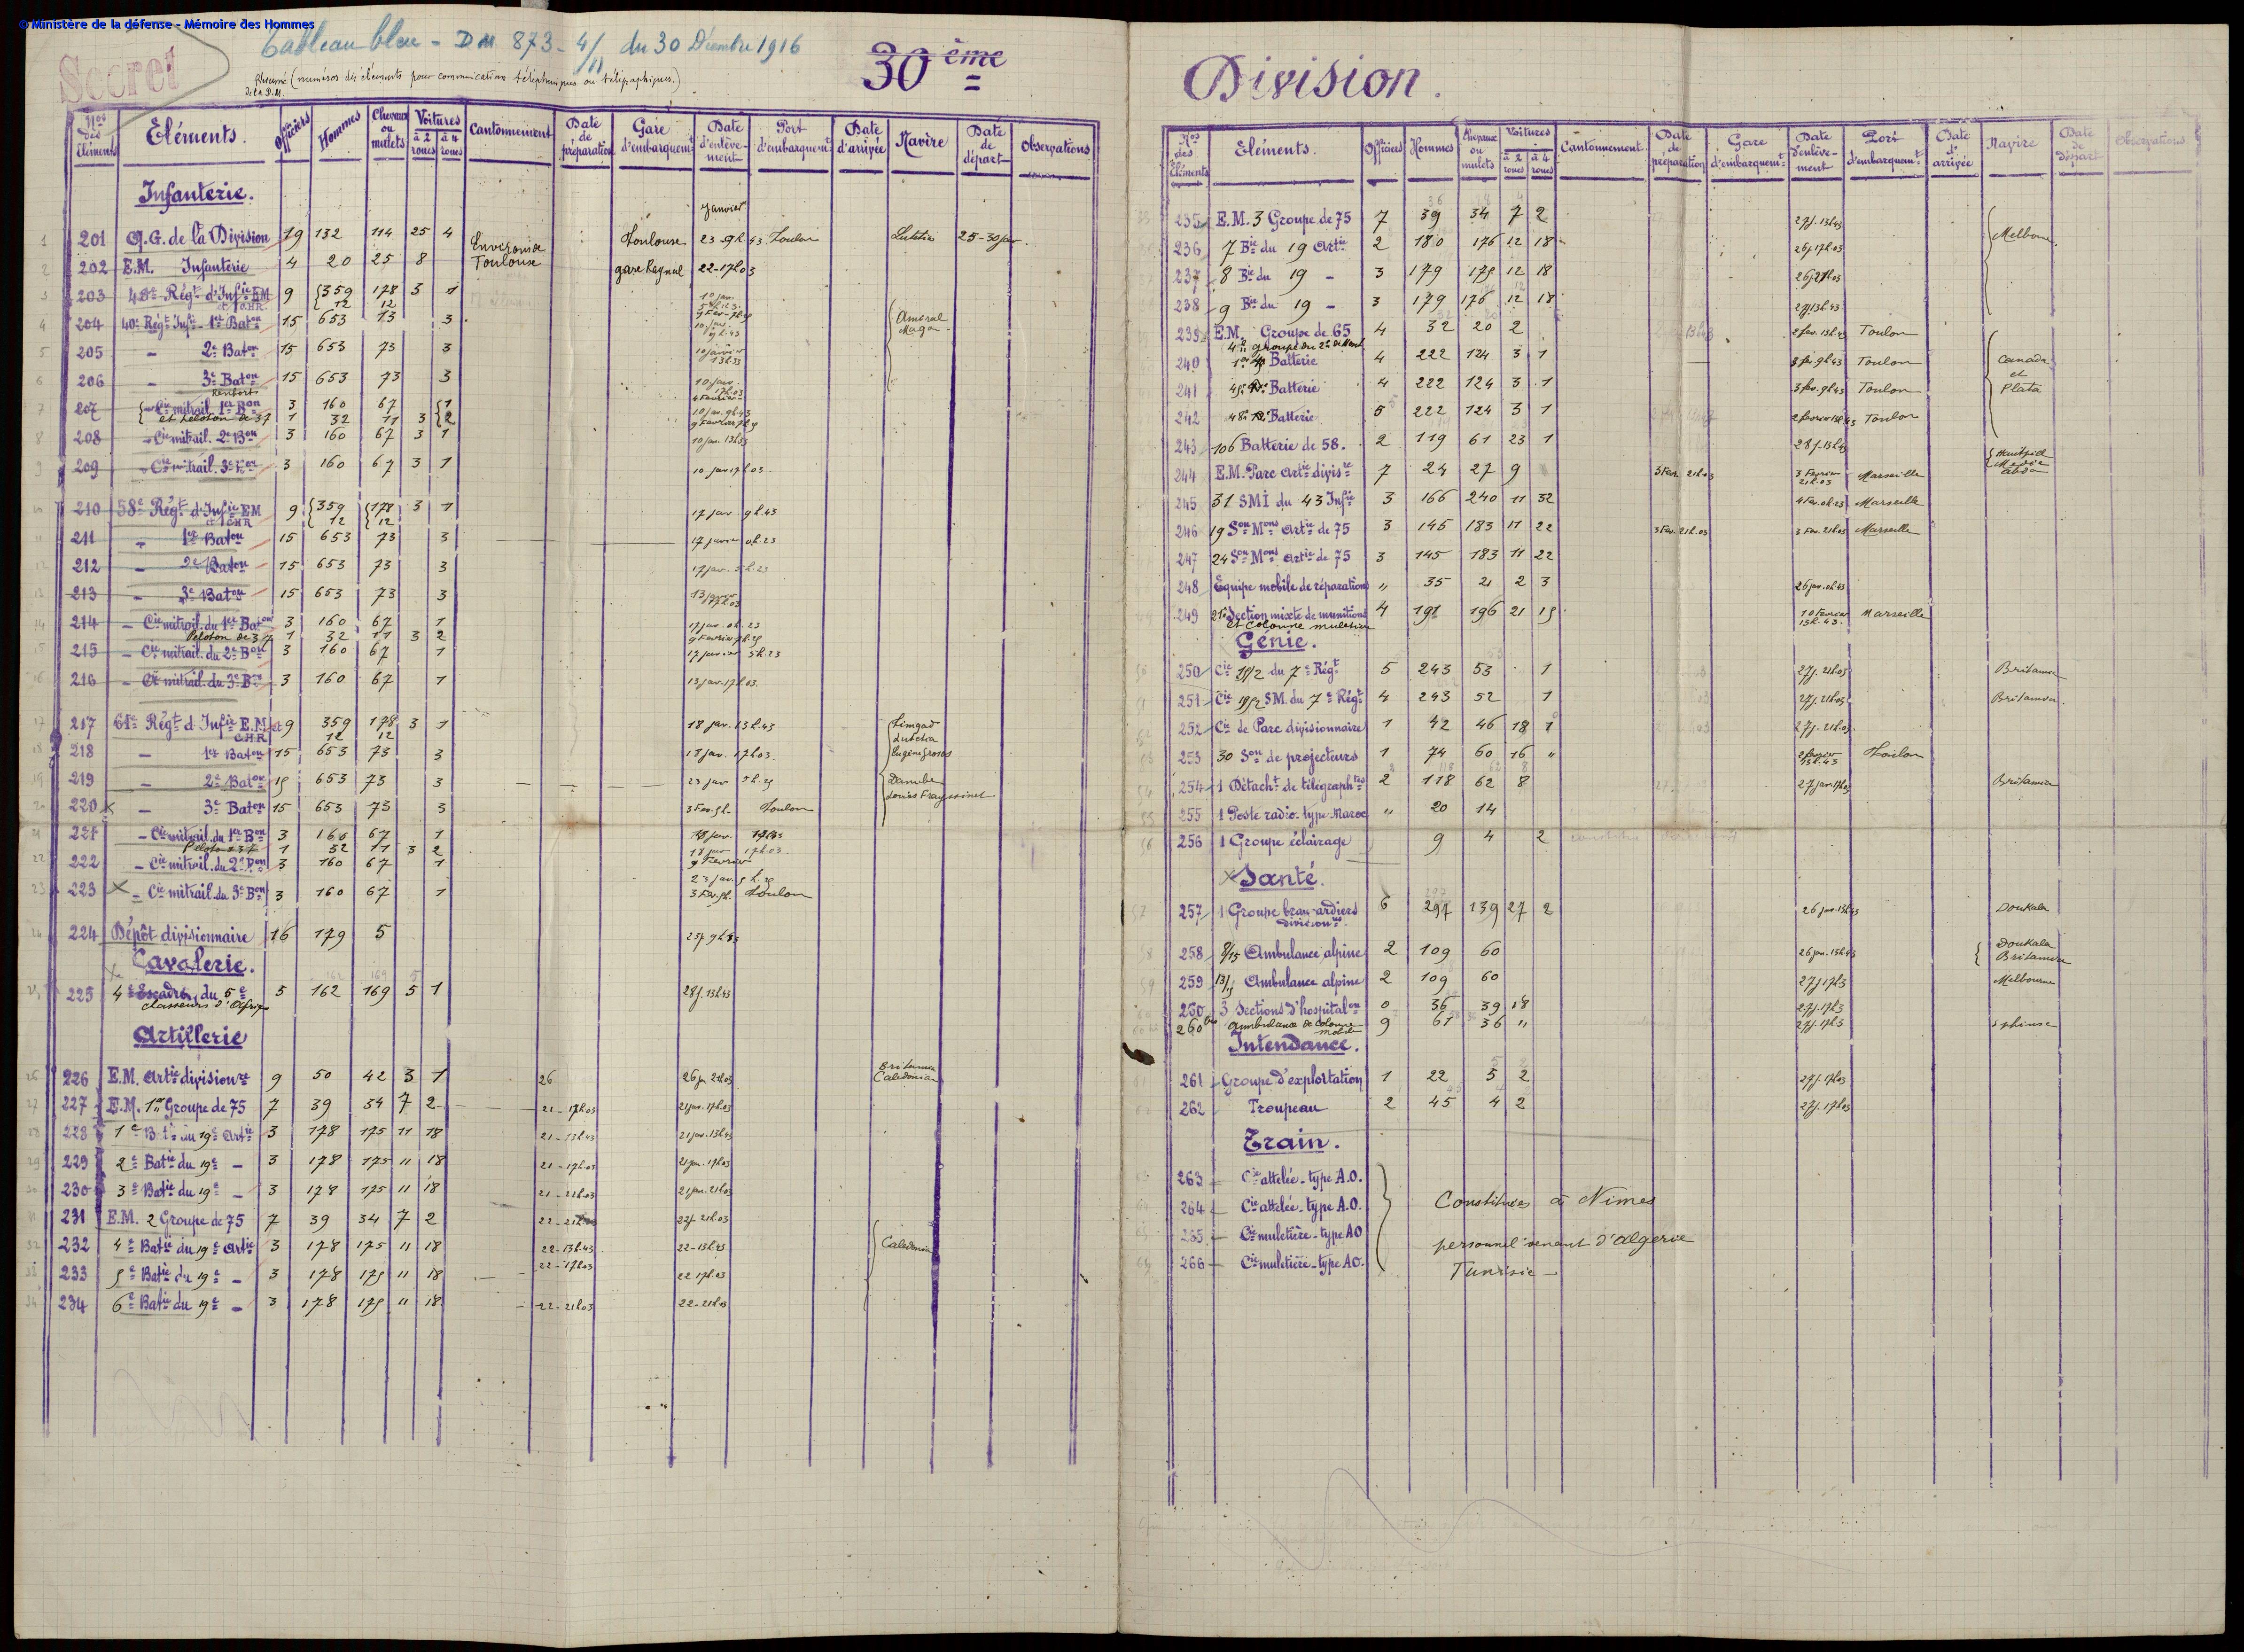 © Ministère de la défense - Mémoire des Hommes
Secret
Tableau bleu - DM 873 - 4/11 du 30 Décembre 1916
(numéros des éléments pour communications téléphoniques ou télégraphiques.)
30ème Division.
Nos des Éléments Eléments. Officiers Hommes Chevaux ou mulets Voitures à 2 roues à 4 roues Cantonnement Date de préparation Gare d'embarquemt Date d'enlève-ment Port d'embarquemt Date d'arrivée Navire Date de départ Observations
Infanterie.
Janvier
201 Q.G. de la Division 19 132 114 25 4 Environs de Toulouse Toulouse 23-9h43 Toulon Lutetia 25-30 jan.
202 E.M. Infanterie 4 20 25 8 gare Raynal 22-17h03
203 40e Régt d'Infie EM et CHR 9 359 12 178 12 3 1
204 40e Régt Infie - 1er Baton 15 653 73 3
Amiral Magon
205 - 2e Baton 15 653 73 3 10 janvier 13h33
206 - 3e Baton 15 653 73 3 10 janv. 17h03
207 Cie mitrail. 1er Bon 3 160 67 1 10 jan. 9h43
et peloton de 37 1 32 11 3 2
208 - Cie mitrail. 2e Bon 3 160 67 3 1 10 jan. 13h33
209 - Cie mitrail. 3e Bon 3 160 67 3 1 10 jan 17h03.
210 58e Régt d'Infie EM et CHR 9 359 12 178 12 3 1 17 jan. 9h.43
211 - 1er Baton 15 653 73 3 17 janvier 0h.23
212 - 2e Baton 15 653 73 3 17 jav. 5h.23
213 - 3e Baton 15 653 73 3 13 janvier 17h03
214 - Cie mitrail. du 1er Baton 3 160 67 1 17 jav. 0h.23
Peloton de 37 1 32 11 3 2
215 - Cie mitrail. du 2e Bon 3 160 67 1 17 janvier 5h.23
216 - Cie mitrail. du 3e Bon 3 160 67 1 13 jav. 17h03.
217 61e Régt d'Infie E.M. et CHR 9 359 12 178 12 3 1 18 jav. 13h.43 Timgad Lutetia
218 - 1er Baton 15 653 73 3 18 jav. 17h03.
219 - 2e Baton 15 653 73 3 23 jav
220 - 3e Baton 15 653 73 3 Toulon
221 - Cie mitrail. du 1er Bon 3 160 67 1
Peloton 37 1 32 11 3 2
222 - Cie mitrail. du 2e Bon 3 160 67 1
223 - Cie mitrail. du 3e Bon 3 160 67 1 Toulon
224 Dépôt divisionnaire 16 179 5
Cavalerie.
225 4e Escadron du 5e 5 162 169 5 1 28j. 13h43
chasseurs d'Afrique
Artillerie
226 E.M. Artie divisionre 9 50 42 3 1 26 26 jan 21h03 Britannia Caledonian
227 E.M. 1er Groupe de 75 7 39 34 7 2 21-17h03 21 jan. 17h03
228 1e Btie du 19e Artie 3 178 175 11 18 21-13h43 21 jan. 13h43
229 2e Batie du 19e - 3 178 175 11 18 21-17h03 21 jan. 17h03
230 3e Batie du 19e - 3 178 175 11 18 21-21h03 21 jan. 21h03
231 E.M. 2 Groupe de 75 7 39 34 7 2 22-21h03 22j. 21h03
232 4e Batie du 19e Artie 3 178 175 11 18 22-13h.43 22-13h43 Caledonian
233 5e Batie du 19e - 3 178 175 11 18 22-17h03 22 17h.03
234 6e Batie du 19e - 3 178 175 11 18 22-21h03 22-21h03
Nos des Éléments Eléments. Officiers Hommes Chevaux ou mulets Voitures à 2 roues à 4 roues Cantonnement Date de préparation Gare d'embarquemt Date d'enlève-ment Port d'embarquemt Date d'arrivée Navire Date de départ Observations
235 E.M. 3 Groupe de 75 7 39 34 7 2 27j. 13h43
Melbourne
236 7 Bie du 19 Artie 2 180 176 12 18 26j. 17h03
237 8 Bie du 19 - 3 179 175 12 18 26j. 21h03
238 9 Bie du 19 - 3 179 176 12 18 27j. 13h43
239 E.M. Groupe de 65 4 32 20 2 2 fev. 13h43 Toulon
240 1er Batterie 4 222 124 3 1 3 fev. 9h43 Toulon Canada et Plata
241 Batterie 4 222 124 3 1 3 fev. 9h43 Toulon
242 Batterie 5 222 124 3 1 Toulon
243 106 Batterie de 58. 2 119 61 23 1 28j. 13h43
244 E.M. Parc Artie divisre 7 24 27 9 3 Fev. 21h03 3 Fevrier 21h.03 Marseille
245 31 SMI du 43 Infie 3 166 240 11 32 Marseille
246 19 Son Mons Artie de 75 3 145 183 11 22 3 Fev. 21h.03 3 Fev. 21h03 Marseille
247 24 Son Mons Artie de 75 3 145 183 11 22
248 Equipe mobile de réparations " 35 21 2 3 26 jan. 0h43
249 21e Section mixte de munitions 4 191 196 21 15 10 Fevrier 13h.43. Marseille
et Colonne muletière
Génie.
250 Cie 19/2 du 7e Régt 5 243 53 1 27j. 21h03 Britannia
251 Cie 19/52 SM. du 7e Régt 4 243 52 1 27j. 21h03 Britannia.
252 Cie de Parc divisionnaire 1 42 46 18 1 27j. 21h03.
253 30 Son de projecteurs 1 74 60 16 " 2 fevrier 13h.43 Toulon
254 1 Détacht de télégraphtes 2 118 62 8 27 jan. 17h03 Britannia
255 1 Poste radio. type Maroc " 20 14
256 1 Groupe éclairage 9 4 2
Santé.
257 1 Groupe brancardiers 6 297 139 27 2 26 jan. 13h43 Doukala
258 8/15 Ambulance alpine 2 109 60 26 jan. 13h43 Doukala Britannia
259 13/15 Ambulance alpine 2 109 60 27j 17h3 Melbourne
260 3 Sections d'hospitalon 0 36 39 18 27j. 17h3
260 bis Ambulance de Colonne mobile 9 61 36 " 27j. 17h3 Sphinx
Intendance.
261 Groupe d'exploitation 1 22 5 2 27j. 17h03
262 Troupeau 2 45 4 2 27j. 17h03
Train.
263 Cie attelée - type A.O.
264 Cie attelée - type A.O. Constituées à Nimes
265 Cie muletière - type AO personnel venant d'Algérie
266 Cie muletière - type AO. Tunisie -